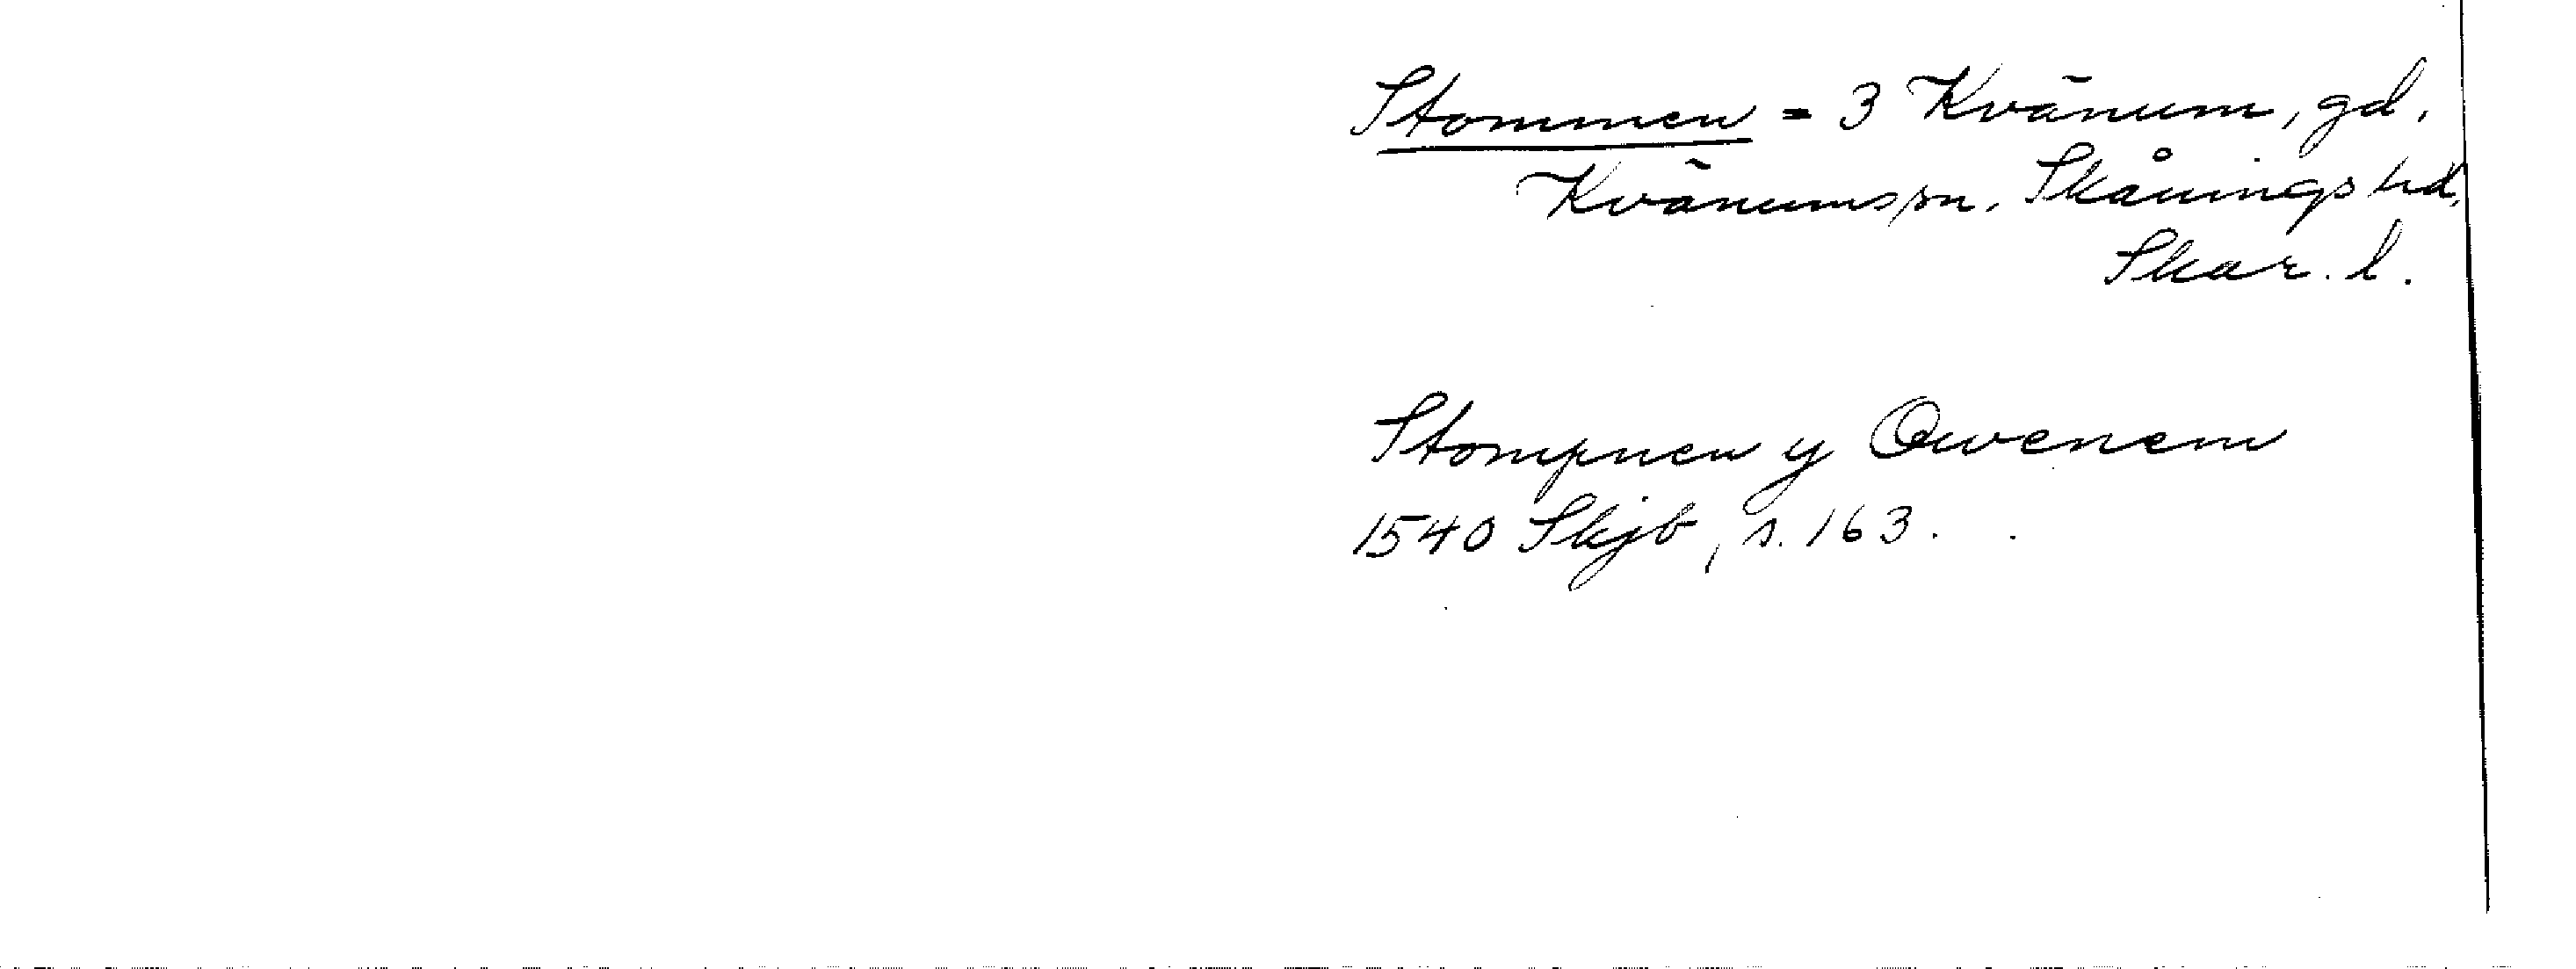 Stommen = 3 Kvänum, gd,
Kvänums sn. Skånings hd,
Skar. l.
Stompnen y Qwenem
1540 Skjb, s. 163.